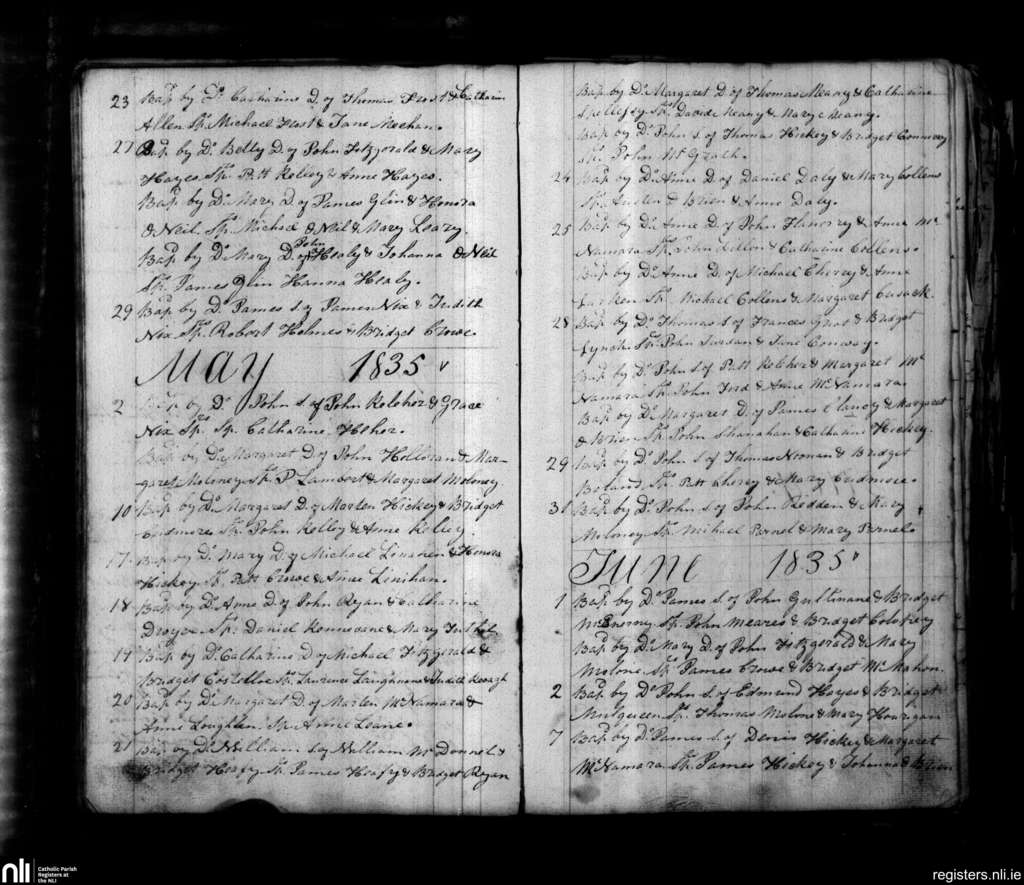 23 Bap. by Do. Catharine D. of Thomas Frost & Catharin
Allen Sp. Michael Frost & Jane Meehan.
27 Bap. by Do. Betty D. of John Fitzgerald & Mary
Hayes Sp. Patt Kelley & Anne Hayes.
Bap. by Do. Mary D. of James Glin & Honora
O Neil Sp. Michael O Neil & Mary Leary.
Bap. by Do. Mary D. of John Healy & Johanna O Neil
Sp. James Hanna Healy.
29 Bap. by D. James S. of James Nix & Judith
Nix Sp. Robert Holmes & Bridget Crowe
May 1835
2 by Do. John S. of John Kelcher & Grace
Nix Sp. Catharine
Bap. by Do. Margaret D. of John Holloran & Mar-
garet Moloney Sp. P. Lambert & Margaret Moloney
10 Bap. by Do. Margaret D. of Marten Hickey & Bridget
Sp. John Kelley & Anne Kelley
17 Bap. by Do. Mary D. of Michael & Honora
Hickey Sp. Patt Crowe & Linihan.
18 Bap. by Do. Anne D. of John Ryan & Catharine
Sp. Daniel & Mary
19 Bap. by Do. Catharine D. of Michael Fitzgerald &
Bridget Costelloe Sp. Laurence & Judith
20 Bap. by Do. Margaret D. of Marten McNamara &
Anne Loughlen Sp. Anne Leane.
21 Bap. by Do. William S. of William Mc Donnel &
Bridget Heafy Sp. James Heafy & Bridget Ryan
Bap. by Do. Margaret D. of Thomas Meany & Catharine
Spellesey Sp. David Meany & Mary Meany.
Bap. by Do. John S. of Thomas Hickey & Bridget Conway
Sp. John McGrath.
24 Bap. by Do. Anne D. of Daniel Daly & Mary Collens
Sp. Austen O Brien & Anne Daly.
25 Bap. by Do. Anne D. of John & Anne Mc
Namara Sp. John Dillon & Catharine Collens.
Bap. by Do. Anne D. of Michael & Anne
Larken Sp. Michael Collens & Margaret Cusack.
28 Bap. by Do. Thomas S. of Frances & Bridget
Lynch Sp. John & Jane Conway.
Bap. by Do. John S. of Patt Kelcher & Margaret Mc
Namara Sp. John Ford & Anne McNamara.
Bap. by Do. Margaret D. of James Clancy & Margaret
O Brien Sp. John Shanahan & Catharine Hickey.
29 Bap. by Do. John S. of Thomas Noonan & Bridget
Boland Sp. Patt & Mary
31 Bap. by Do. John S. of John Redden & Mary
Moloney Sp. Mihael & Mary
June 1835
1 Bap. by Do. James S. of John Gullinane & Bridget
McEnerny Sp. John Meares & Bridget
Bap. by Do. Mary D. of John Fitzgerald & Mary
Molone Sp. James Crowe & Bridget McMahon.
2 Bap. by Do. John S. of Edmund Hayes & Bridget
Sp. Thomas Molone & Mary Hourigan
7 Bap. by Do. James S. of Denis Hickey & Margaret
McNamara Sp. James Hickey & Johanna O Brien
nli Catholic Parish
Registers at
the NLI
registers.nli.ie